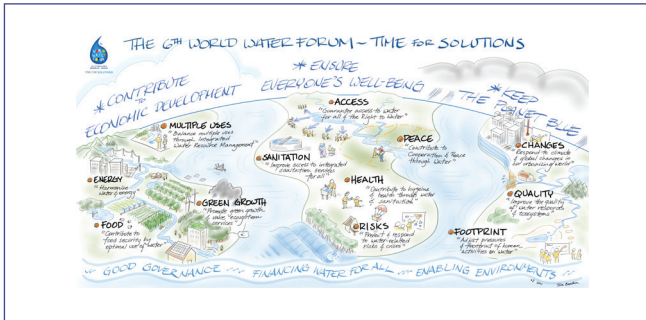 THE 6TH WORLD WATER FORUM ~ TIME FOR SOLUTIONS
* CONTRIBUTE
TO
ECONOMIC DEVELOPMENT
* ENSURE
EVERYONE'S WELL-BEING
* KEEP
THE PLANET BLUE
MULTIPLE USES
"Balance multiple uses
through Integrated
Water Resource Management"
ENERGY
"Harmonize
water & energy"
GREEN GROWTH
"Promote green growth
& value ecosystem
services"
FOOD
"Contribute to
food security by
optimal use of water"
ACCESS
"Guarantee access to water
for all & the Right to Water"
SANITATION
"Improve access to integrated
sanitation
for all"
PEACE
"Contribute to
Cooperation & Peace
through Water"
HEALTH
"Contribute to hygiene
& health through water
& sanitation"
RISKS
"Protect & respond
to water-related
risks & crises"
CHANGES
"Respond to climate
& global changes in
an urbanizing world"
QUALITY
"Improve the quality
of water resources
& ecosystems"
FOOTPRINT
"Adjust pressures
& footprint of human
activities on water"
GOOD GOVERNANCE ~ FINANCING WATER FOR ALL ~ ENABLING ENVIRONMENTS